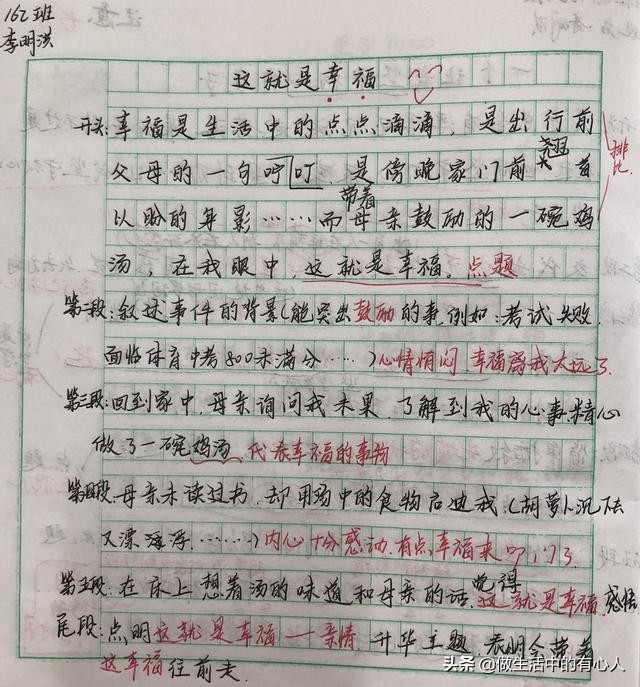 162班
李明洪
这就是幸福
开头:幸福是生活中的点点滴滴,是出行前
父母的一句叮咛,是傍晚家门前翘首
以盼的身影……而带着母亲鼓励的一碗鸡
汤,在我眼中,这就是幸福。点题
排比
第二段:叙述事件的背景(能突出鼓励的事.例如:考试失败.
面临体育中考800未满分……)心情烦闷 幸福离我太远了.
第三段:回到家中.母亲询问我未果.了解到我的心事.精心
做了一碗鸡汤.代表幸福的事物
第四段:母亲未读过书.却用汤中的食物启迪我:(胡萝卜沉下去
又漂浮………)内心十分感动.有点幸福来叩门了.
第五段:在床上想着汤的味道和母亲的话.觉得这就是幸福.感悟
尾段:点明这就是幸福—亲情 升华主题.表明会带着
这幸福往前走.
头条 @做生活中的有心人